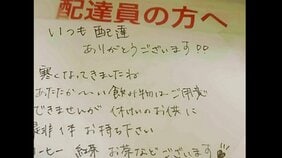 配達員の方へ
いつも 配達
ありがとうございます
寒くなってきましたね
あたたか〜い飲み物はご用意
できませんが 休けいのお供に
お持ち下さい
コーヒー 紅茶 お茶などございます